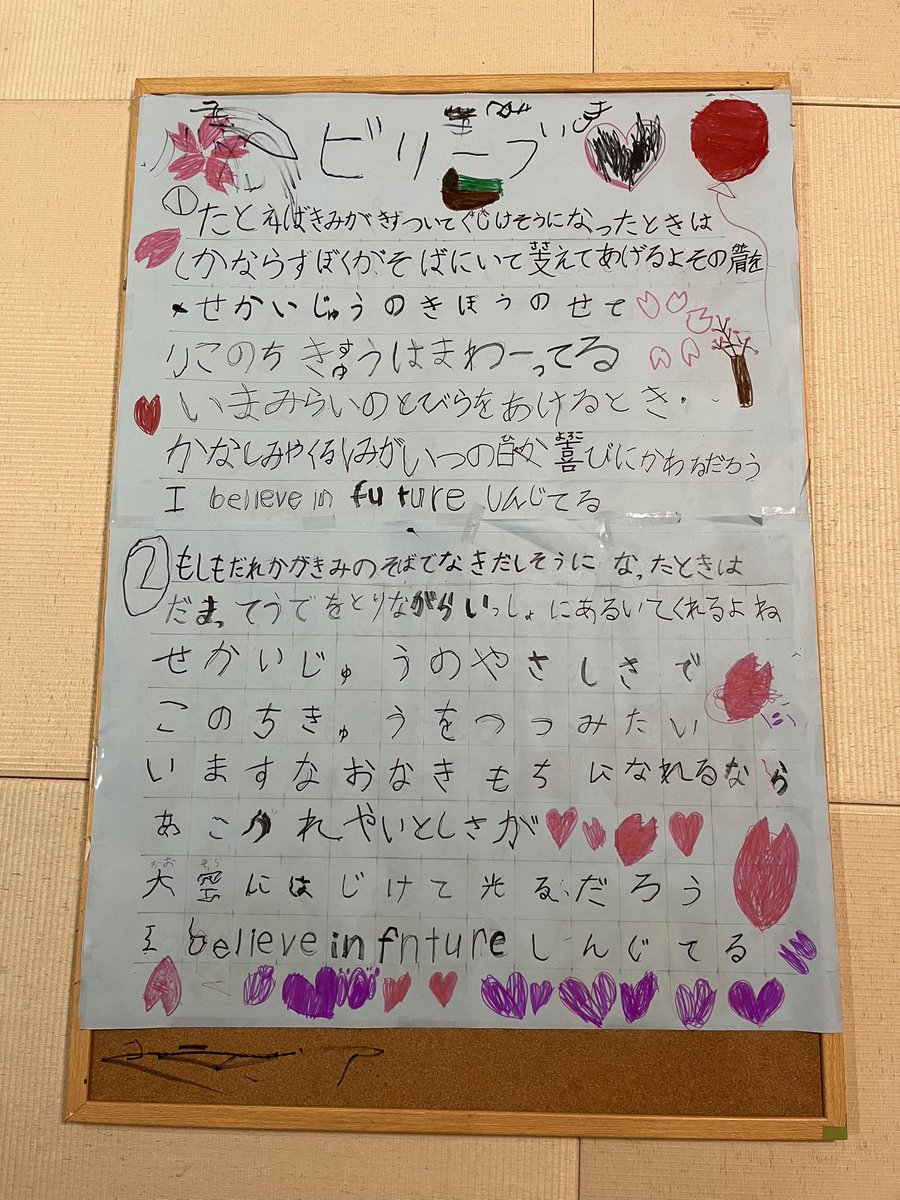 ビリーブ
①たとえばきみがきずついてくじけそうになったときは
かならずぼくがそばにいて支えてあげるよその肩を
せかいじゅうのきぼうのせて
このちきゅうはまわーってる
いまみらいのとびらをあけるとき
かなしみやくるしみがいつの日か喜びにかわるだろう
I believe in future しんじてる
②もしもだれかがきみのそばでなきだしそうになったときは
だまってうでをとりながらいっしょにあるいてくれるよね
せかいじゅうのやさしさで
このちきゅうをつつみたい
いますなおなきもちになれるなら
あこがれやいとしさが
大空にはじけて光るだろう
I believe in fnture しんじてる